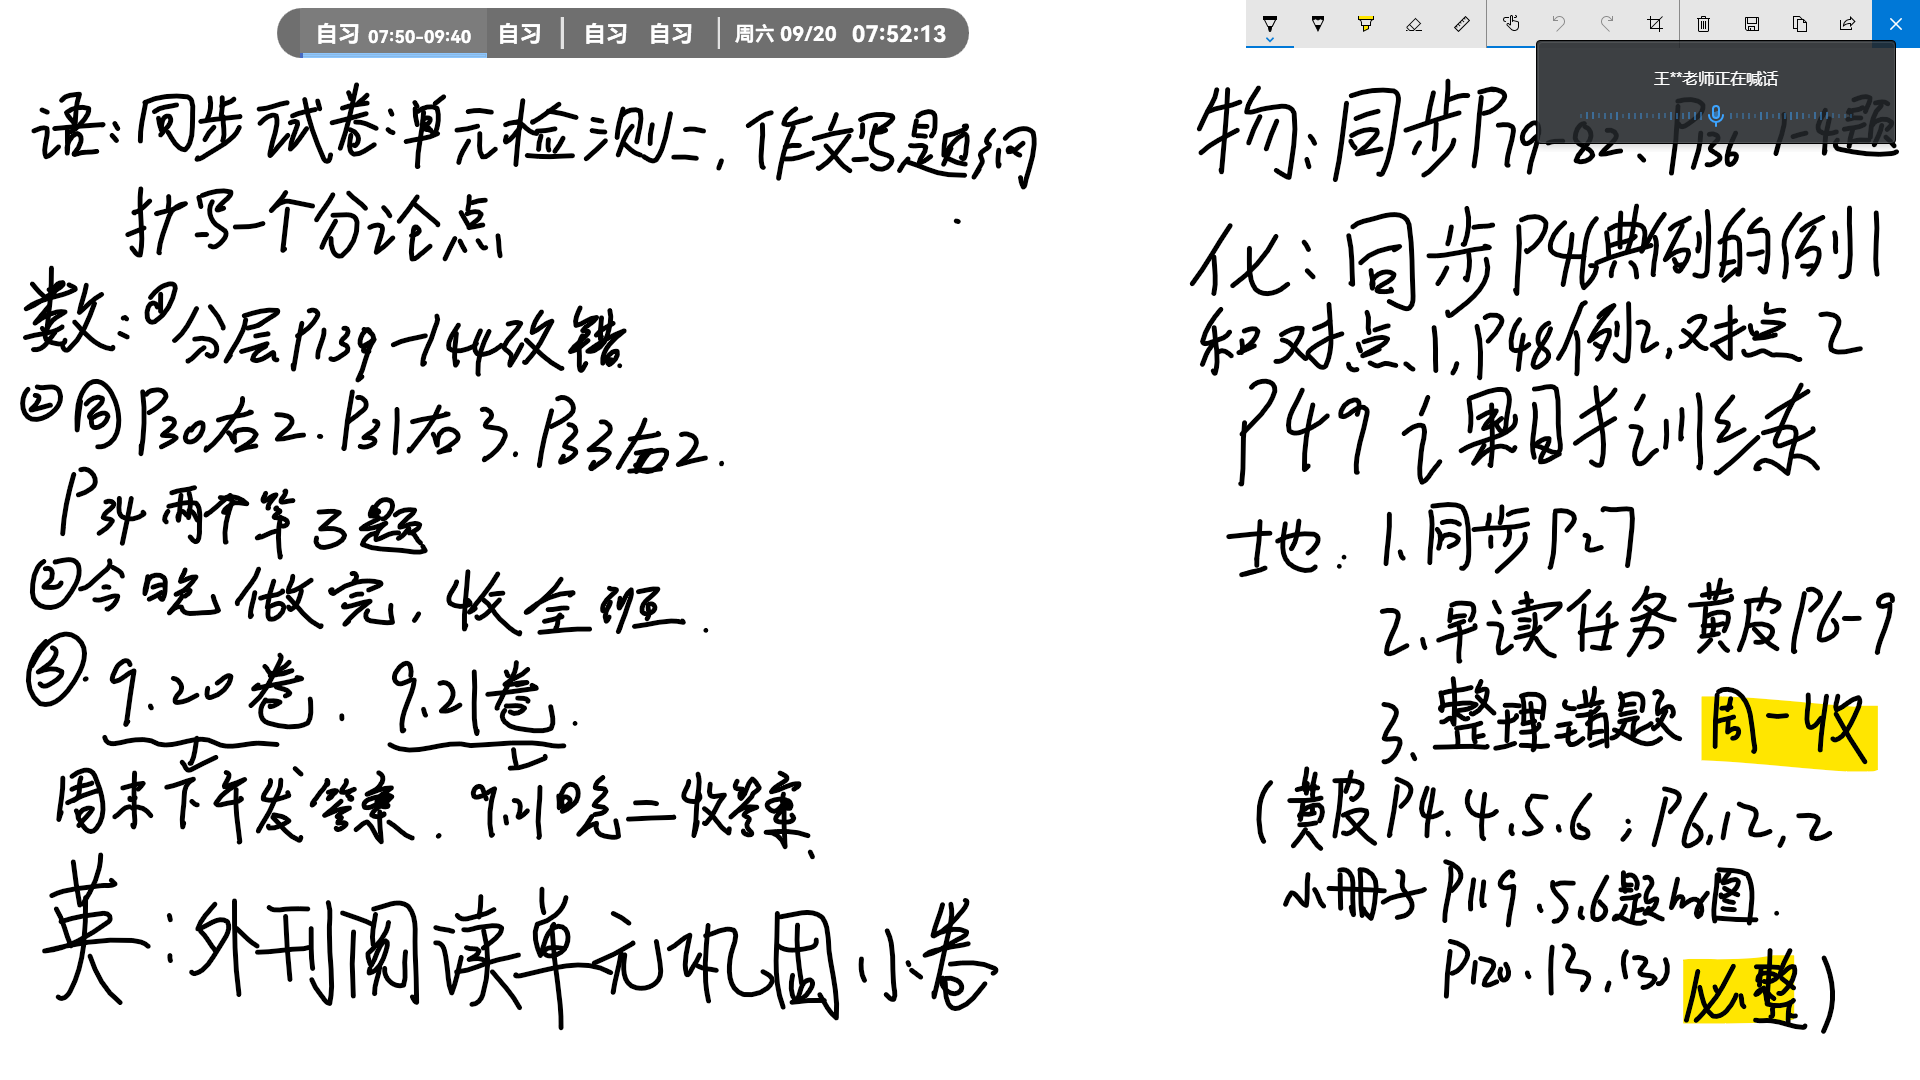 自习 07:50-09:40 自习 | 自习 自习 | 周六 09/20 07:52:13
王**老师正在喊话
语:同步试卷:单元检测二,作文写题纲
抄写一个分论点
数:①分层P139-144改错
②同P30右2.P31右3.P33右2.
P34两个第3题
②今晚做完,收全班.
③.9.20卷.9.21卷.
周末下午发答案.9.21日晚二收答案.
英:外刊阅读单元巩固小卷
物:同步P79-82、P136 1-4题
化:同步P46典例的例1
和对点、1,P48例2,对点2
P49课目标训练
地:1、同步P27
2、早读任务黄皮P6-9
3、整理错题 周一收
(黄皮P4.4.5.6;P6,12,2
小册子P119.5,6题的图.
P120.13,(3) 必整)